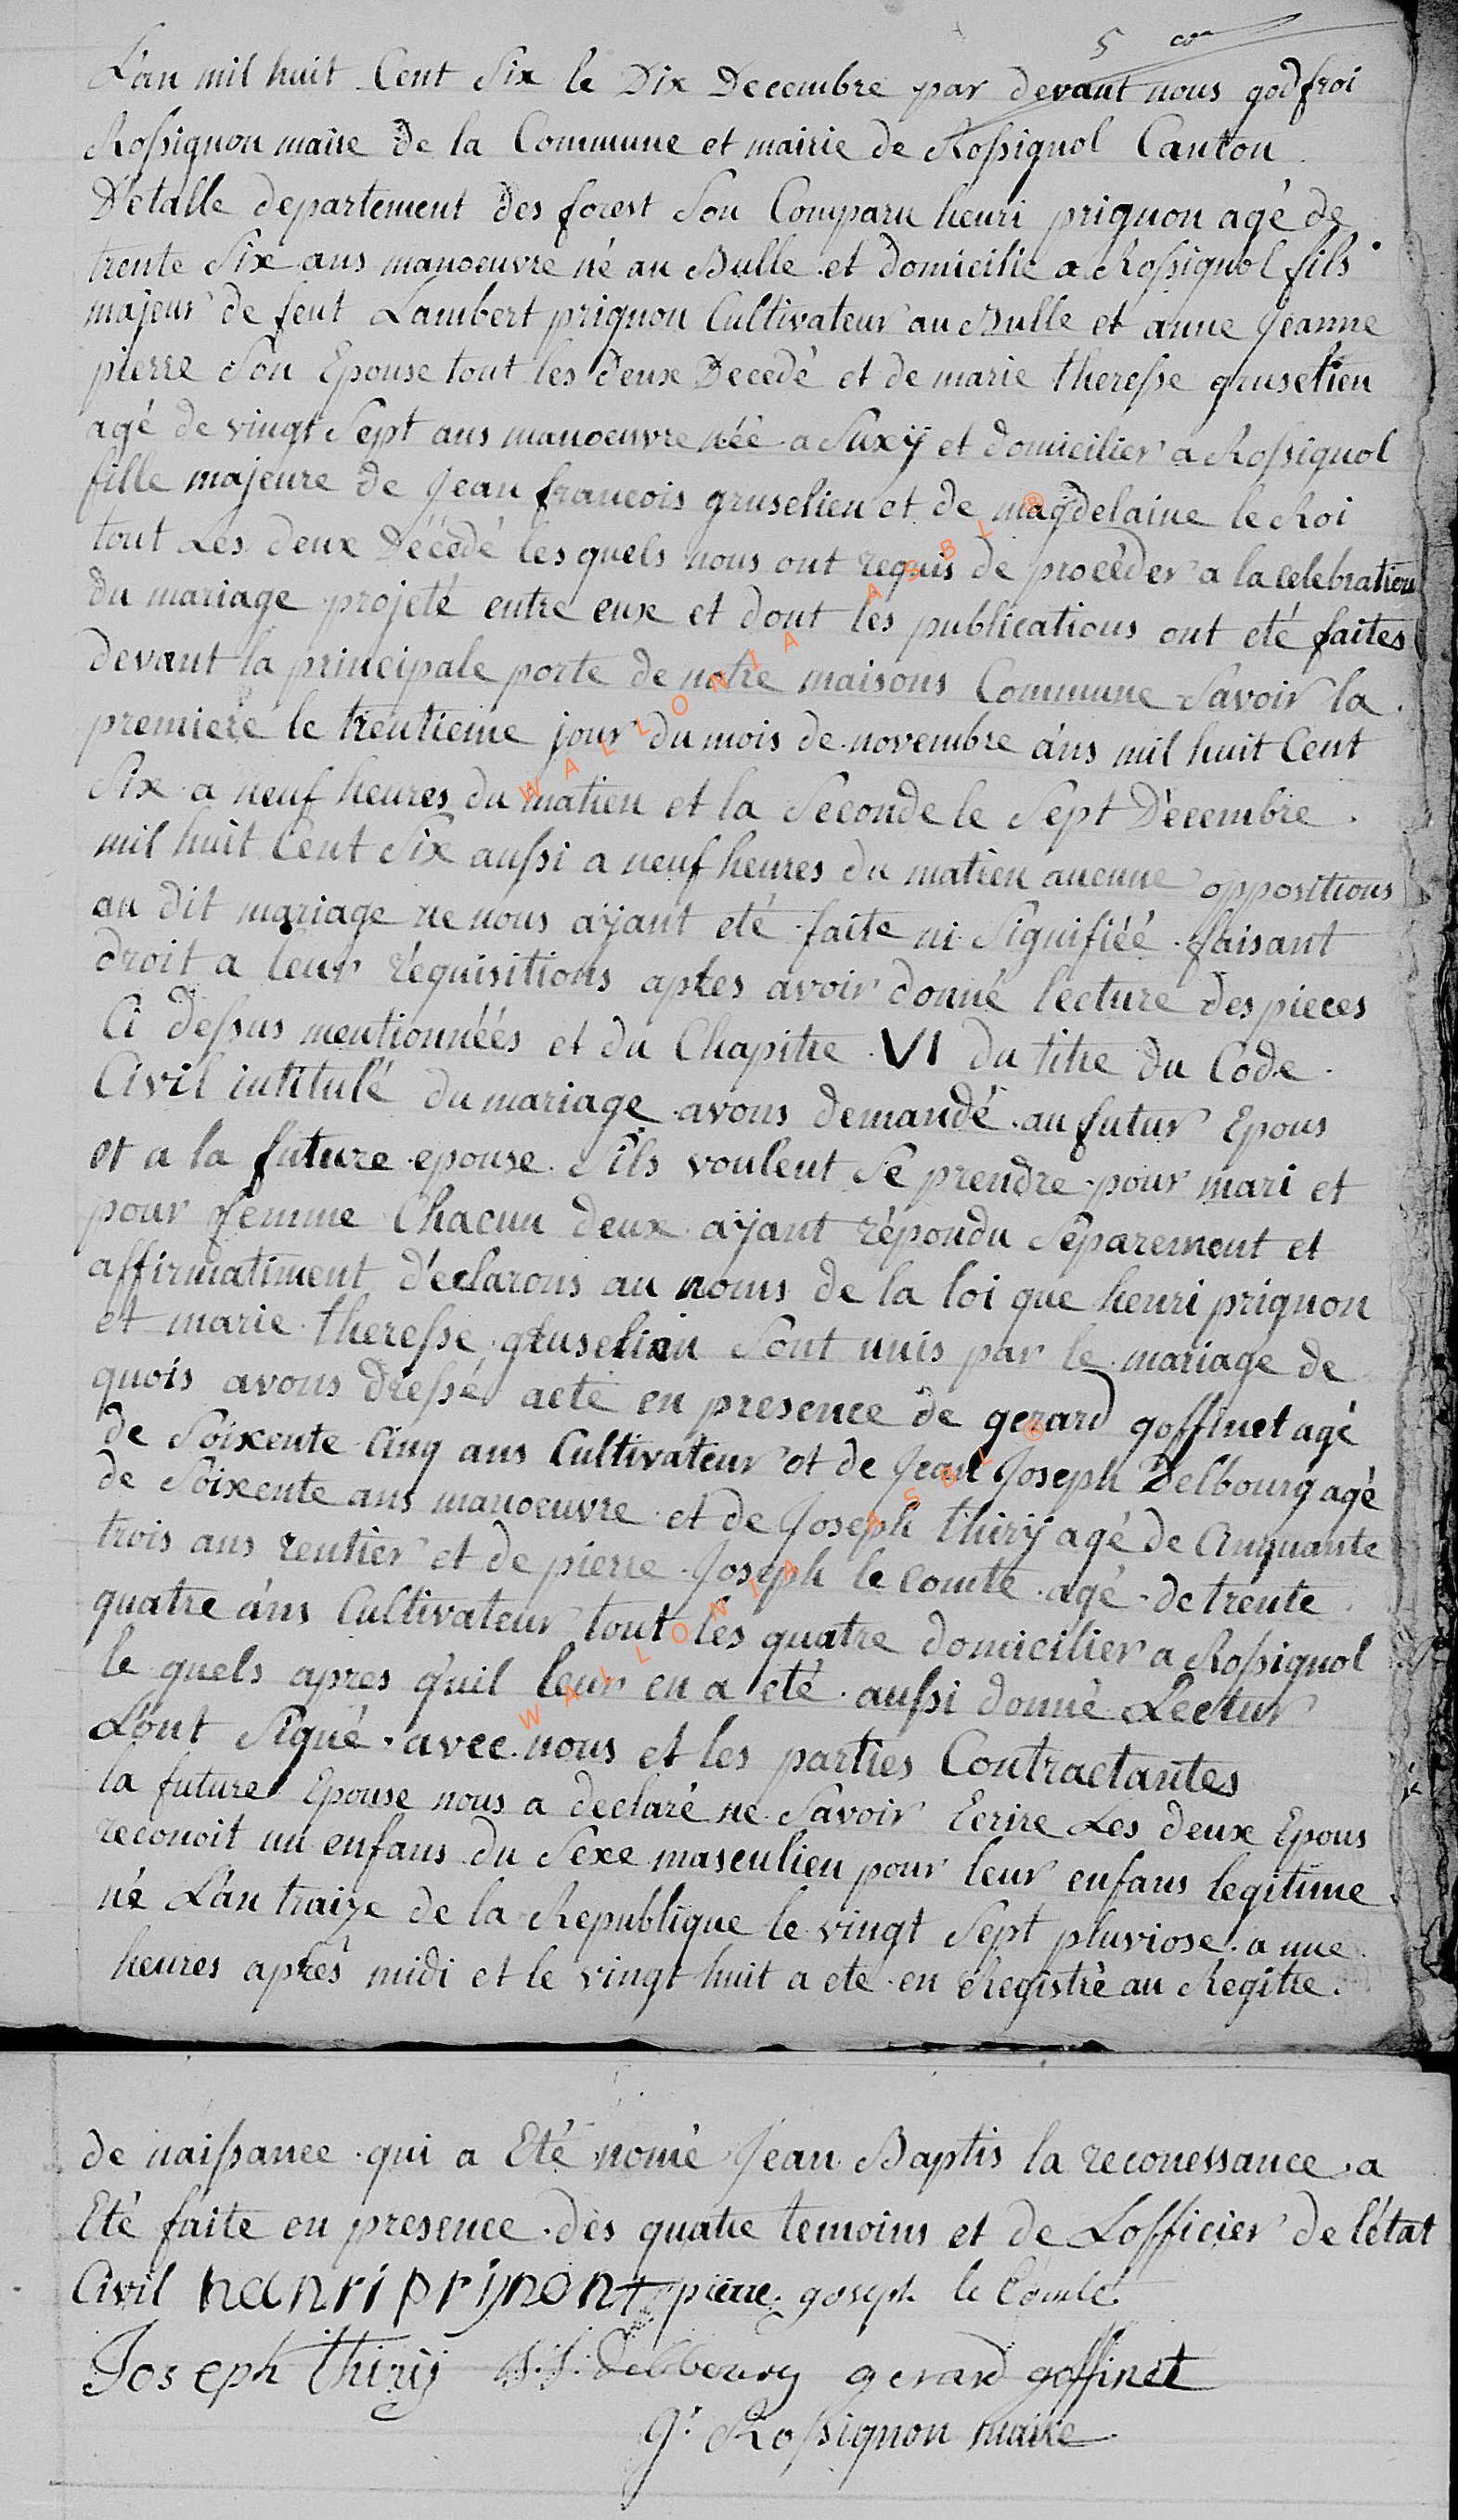 5 con
L'an mil huit Cent Six le Dix Decembre par devant nous godfroi
Rossignon maire de la Commune et mairie de Rossignol Canton
D'Etalle departement des forest Son Comparu henri prignon agé de
trente Six ans manoeuvre né au Bulle et domicilié a Rossignol fils
majeur de feut Lambert prignon Cultivateur au Bulle et anne Jeanne
pierre Son Epouse tout les deux Decedé et de marie theresse gruselien
agé de vingt Sept ans manoeuvre née a Suxÿ et domicilier a Rossignol
fille majeure de Jean francois gruselien et de magdelaine le Roi
tout Les deux Décédé les quels nous ont requis de procéder a la celebration
du mariage projeté entre eux et dont les publications ont eté faites
devant la principale porte de notre maisons Commune Savoir la
premiere le trentieme jour du mois de novembre áns mil huit Cent
Six a neuf heures du matien et la Seconde le Sept Décembre
mil huit Cent Six aussi a neuf heures du matien aucune oppositions
au dit mariage ne nous aÿant eté faite ni Signifiéé faisant
droit a leur réquisitions aprés avoir donné lecture des pieces
Ci dessus mentionnéés et du Chapitre VI du titre du Code
Civil intitulé du mariage avons demandé au futur Epous
et a la future epouse Sils voulent Se prendre pour mari et
pour femme Chacun deux aÿant répondu Séparement et
affirmatiment déclarons au noms de la loi que henri prignon
et marie theresse gruselien Sont unis par le mariage de
quois avons dressé acte en presence de gerard goffinet agé
de Soixente Cinq ans Cultivateur et de Jean Joseph Delbourg agé
de Soixente ans manoeuvre et de Joseph thirÿ agé de Cinquante
trois ans rentier et de pierre Joseph le comte agé de trente
quatre áns Cultivateur tout les quatre domicilier a Rossignol
le quels apres quil leur en a eté aussi donné Lectur
L'ont Signé avec nous et les parties Contractantes
la future Epouse nous a declaré ne Savoir Ecrire Les deux Epous
reconoit un enfans du Sexe masculien pour leur enfans legitime
né L'an traize de la Republique le vingt Sept pluviose a une
heures aprés midi et le vingt huit a ete en Registré au Regitre
de naissance qui a Eté nomé Jean Baptis la reconessance a
Eté faite en presence des quatre temoins et de Lofficier de létat
Civil hanri prijnont pierre joseph le Comte
Joseph thirÿ J.J. Delbourg gerard goffinet
g. Rossignon maire
WALLONIA ASBL ®
WALLONIA ASBL ®